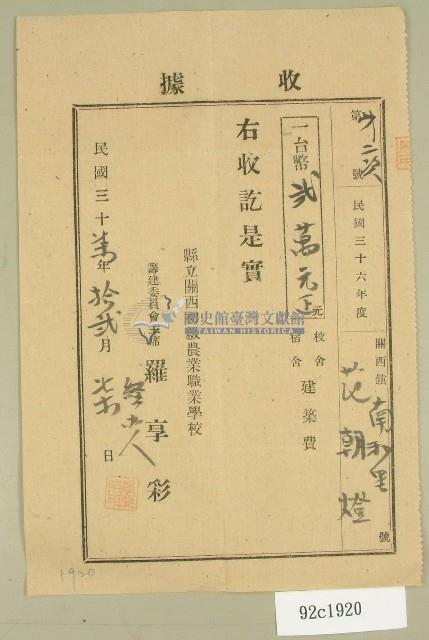 收據
第 號
民國三十六年度
關西鎮南和里
范朝燈
號
一台幣貳萬元正元
校舍
宿舍
建築費
右收訖是實
縣立關西初級農業職業學校
籌建委員會主席 羅享彩
民國三十 年拾貳月 日
國史館臺灣文獻館
TAIWAN HISTORICA
1920
92c1920